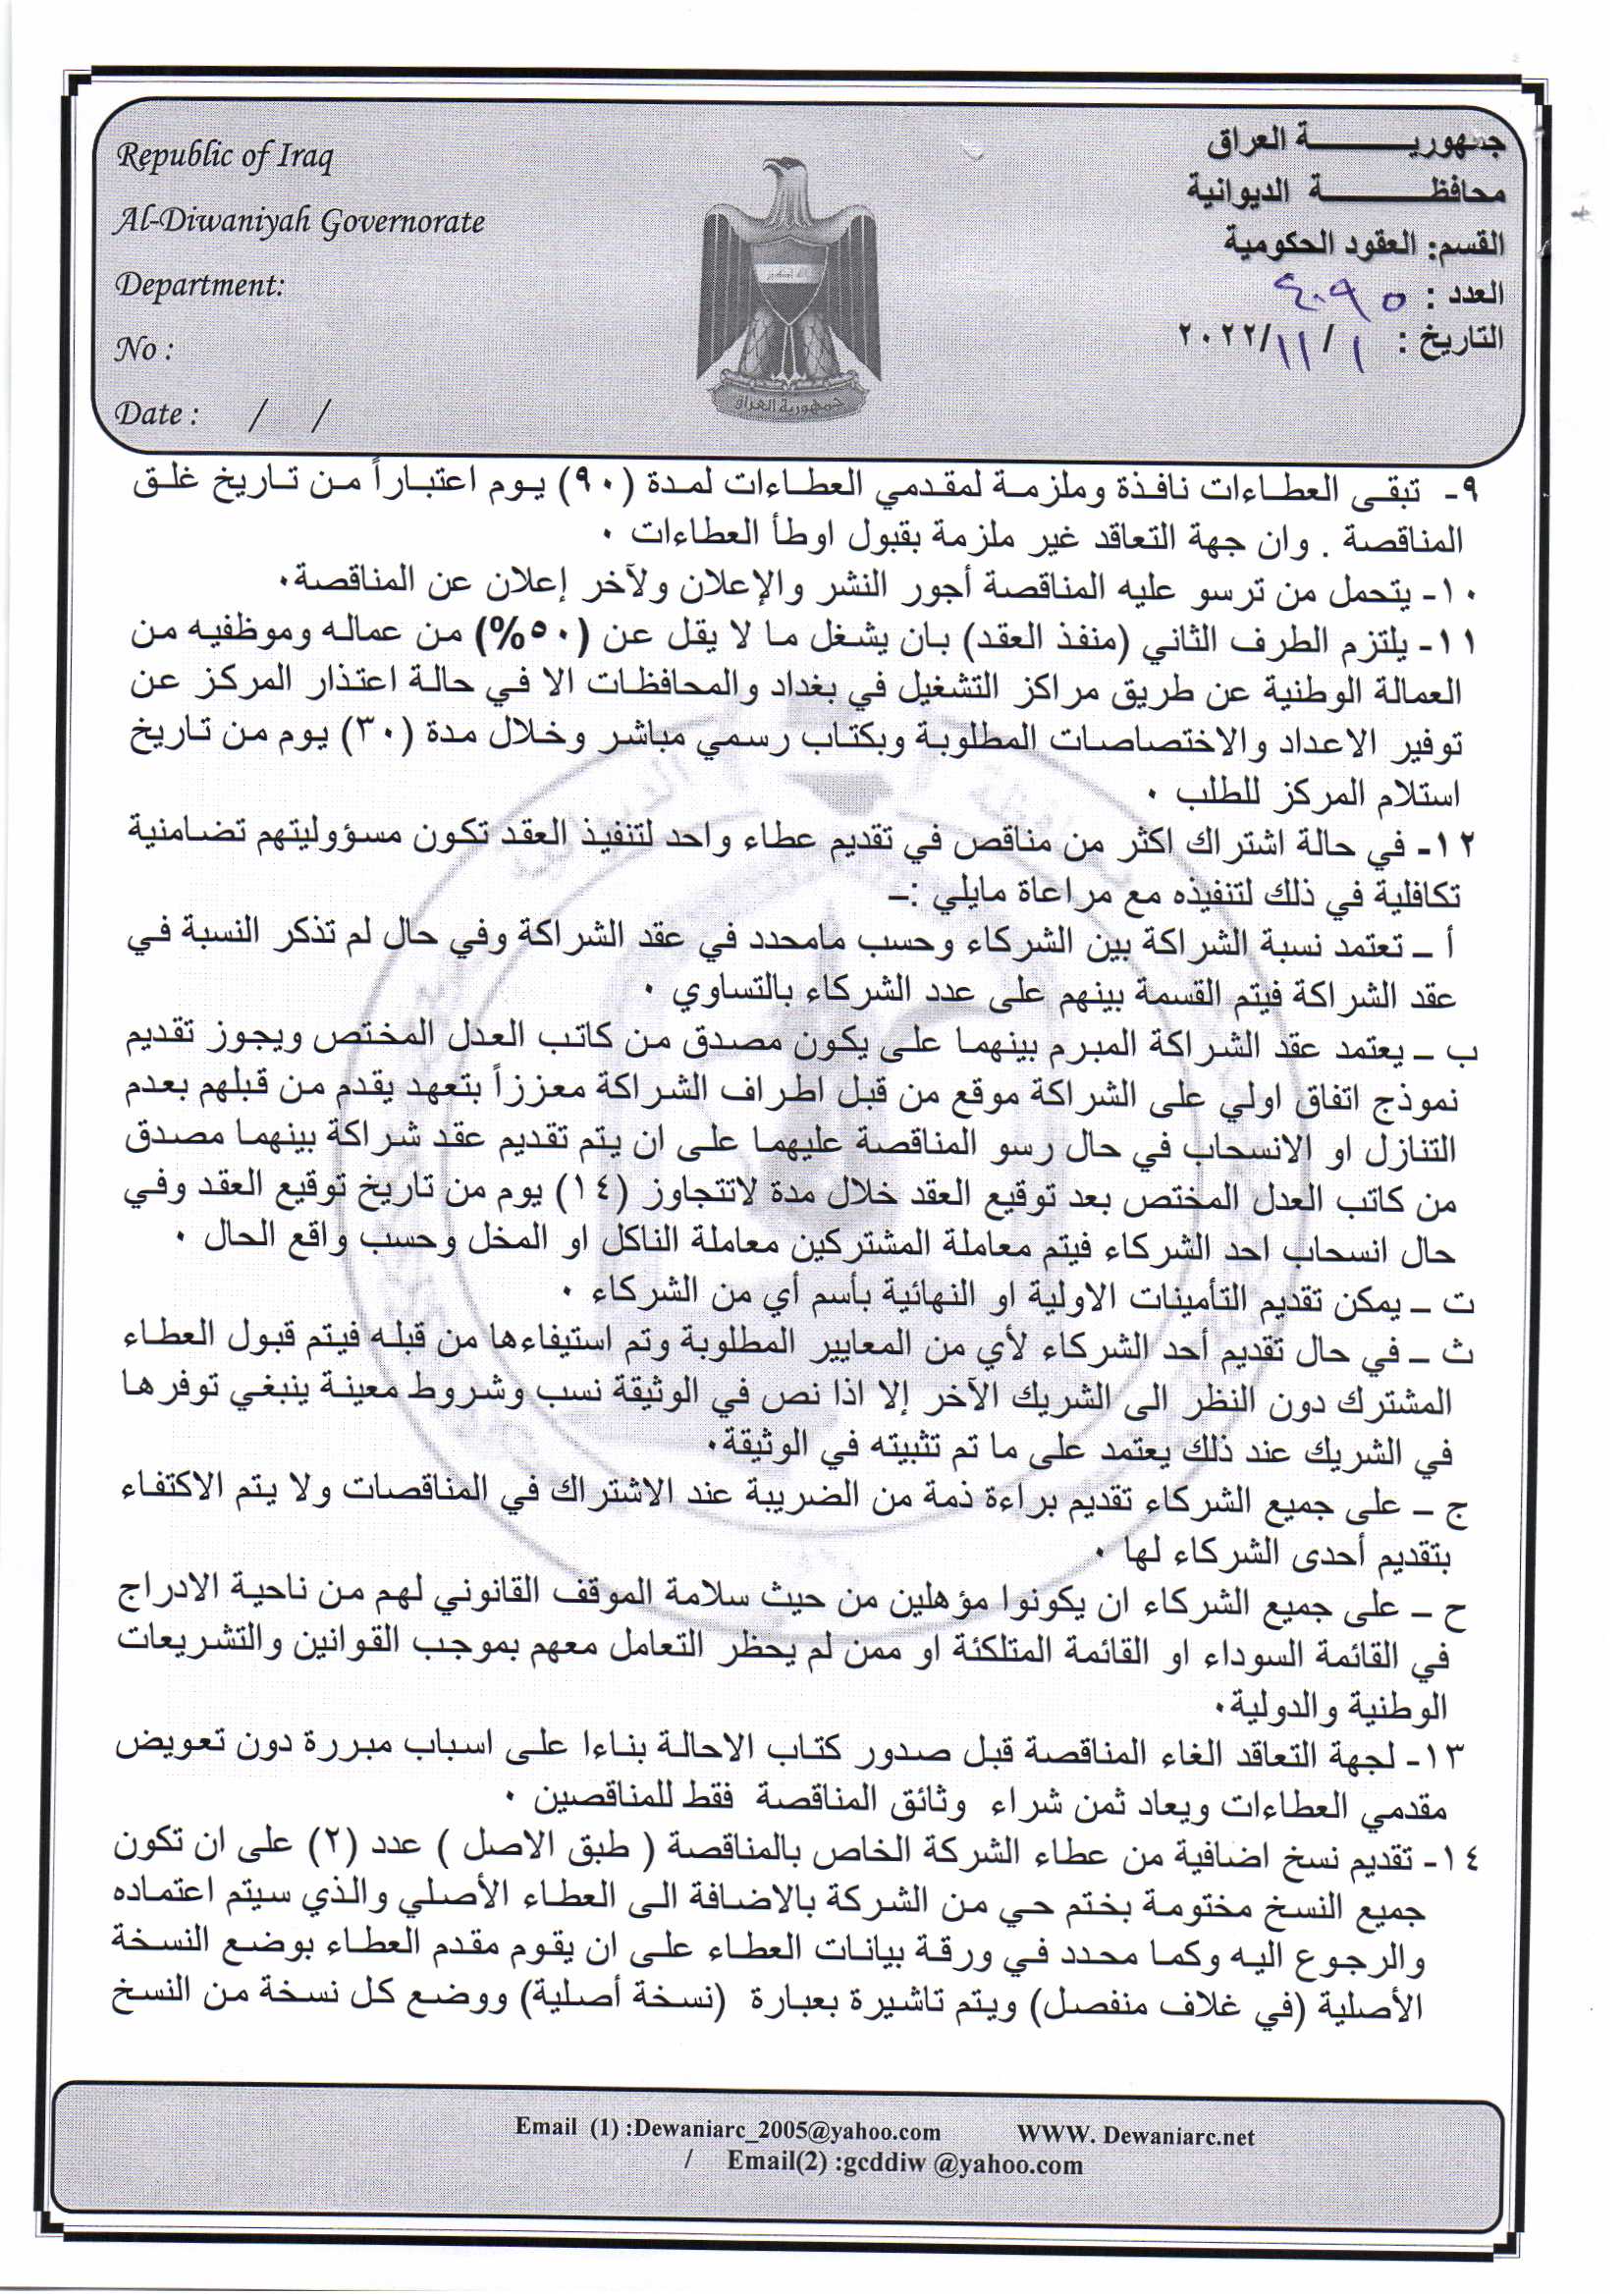 Republic of Iraq
Al-Diwaniyah Governorate
Department:
No :
Date :      /     /
جمهوريـــــــــــة العراق
محافظـــــــــــة الديوانية
القسم: العقود الحكومية
العدد : ٤٠٩٥
التاريخ : ١ / ١١/ ٢٠٢٢
جمهورية العراق
٩- تبقى العطاءات نافذة وملزمة لمقدمي العطاءات لمدة (٩٠) يوم اعتباراً من تاريخ غلق
المناقصة . وان جهة التعاقد غير ملزمة بقبول اوطأ العطاءات ٠
١٠- يتحمل من ترسو عليه المناقصة أجور النشر والإعلان ولآخر إعلان عن المناقصة٠
١١- يلتزم الطرف الثاني (منفذ العقد) بان يشغل ما لا يقل عن (٥٠%) من عماله وموظفيه من
العمالة الوطنية عن طريق مراكز التشغيل في بغداد والمحافظات الا في حالة اعتذار المركز عن
توفير الاعداد والاختصاصات المطلوبة وبكتاب رسمي مباشر وخلال مدة (٣٠) يوم من تاريخ
استلام المركز للطلب ٠
١٢- في حالة اشتراك اكثر من مناقص في تقديم عطاء واحد لتنفيذ العقد تكون مسؤوليتهم تضامنية
تكافلية في ذلك لتنفيذه مع مراعاة مايلي :ــ
أ ــ تعتمد نسبة الشراكة بين الشركاء وحسب مامحدد في عقد الشراكة وفي حال لم تذكر النسبة في
عقد الشراكة فيتم القسمة بينهم على عدد الشركاء بالتساوي ٠
ب ــ يعتمد عقد الشراكة المبرم بينهما على يكون مصدق من كاتب العدل المختص ويجوز تقديم
نموذج اتفاق اولي على الشراكة موقع من قبل اطراف الشراكة معززاً بتعهد يقدم من قبلهم بعدم
التنازل او الانسحاب في حال رسو المناقصة عليهما على ان يتم تقديم عقد شراكة بينهما مصدق
من كاتب العدل المختص بعد توقيع العقد خلال مدة لاتتجاوز (١٤) يوم من تاريخ توقيع العقد وفي
حال انسحاب احد الشركاء فيتم معاملة المشتركين معاملة الناكل او المخل وحسب واقع الحال ٠
ت ــ يمكن تقديم التأمينات الاولية او النهائية بأسم أي من الشركاء ٠
ث ــ في حال تقديم أحد الشركاء لأي من المعايير المطلوبة وتم استيفاءها من قبله فيتم قبول العطاء
المشترك دون النظر الى الشريك الآخر إلا اذا نص في الوثيقة نسب وشروط معينة ينبغي توفرها
في الشريك عند ذلك يعتمد على ما تم تثبيته في الوثيقة٠
ج ــ على جميع الشركاء تقديم براءة ذمة من الضريبة عند الاشتراك في المناقصات ولا يتم الاكتفاء
بتقديم أحدى الشركاء لها ٠
ح ــ على جميع الشركاء ان يكونوا مؤهلين من حيث سلامة الموقف القانوني لهم من ناحية الادراج
في القائمة السوداء او القائمة المتلكئة او ممن لم يحظر التعامل معهم بموجب القوانين والتشريعات
الوطنية والدولية٠
١٣- لجهة التعاقد الغاء المناقصة قبل صدور كتاب الاحالة بناءا على اسباب مبررة دون تعويض
مقدمي العطاءات ويعاد ثمن شراء  وثائق المناقصة  فقط للمناقصين ٠
١٤- تقديم نسخ اضافية من عطاء الشركة الخاص بالمناقصة ( طبق الاصل ) عدد (٢) على ان تكون
جميع النسخ مختومة بختم حي من الشركة بالاضافة الى العطاء الأصلي والذي سيتم اعتماده
والرجوع اليه وكما محدد في ورقة بيانات العطاء على ان يقوم مقدم العطاء بوضع النسخة
الأصلية (في غلاف منفصل) ويتم تاشيرة بعبارة  (نسخة أصلية) ووضع كل نسخة من النسخ
Email  (1) :Dewaniarc_2005@yahoo.com          WWW. Dewaniarc.net
/     Email(2) :gcddiw @yahoo.com